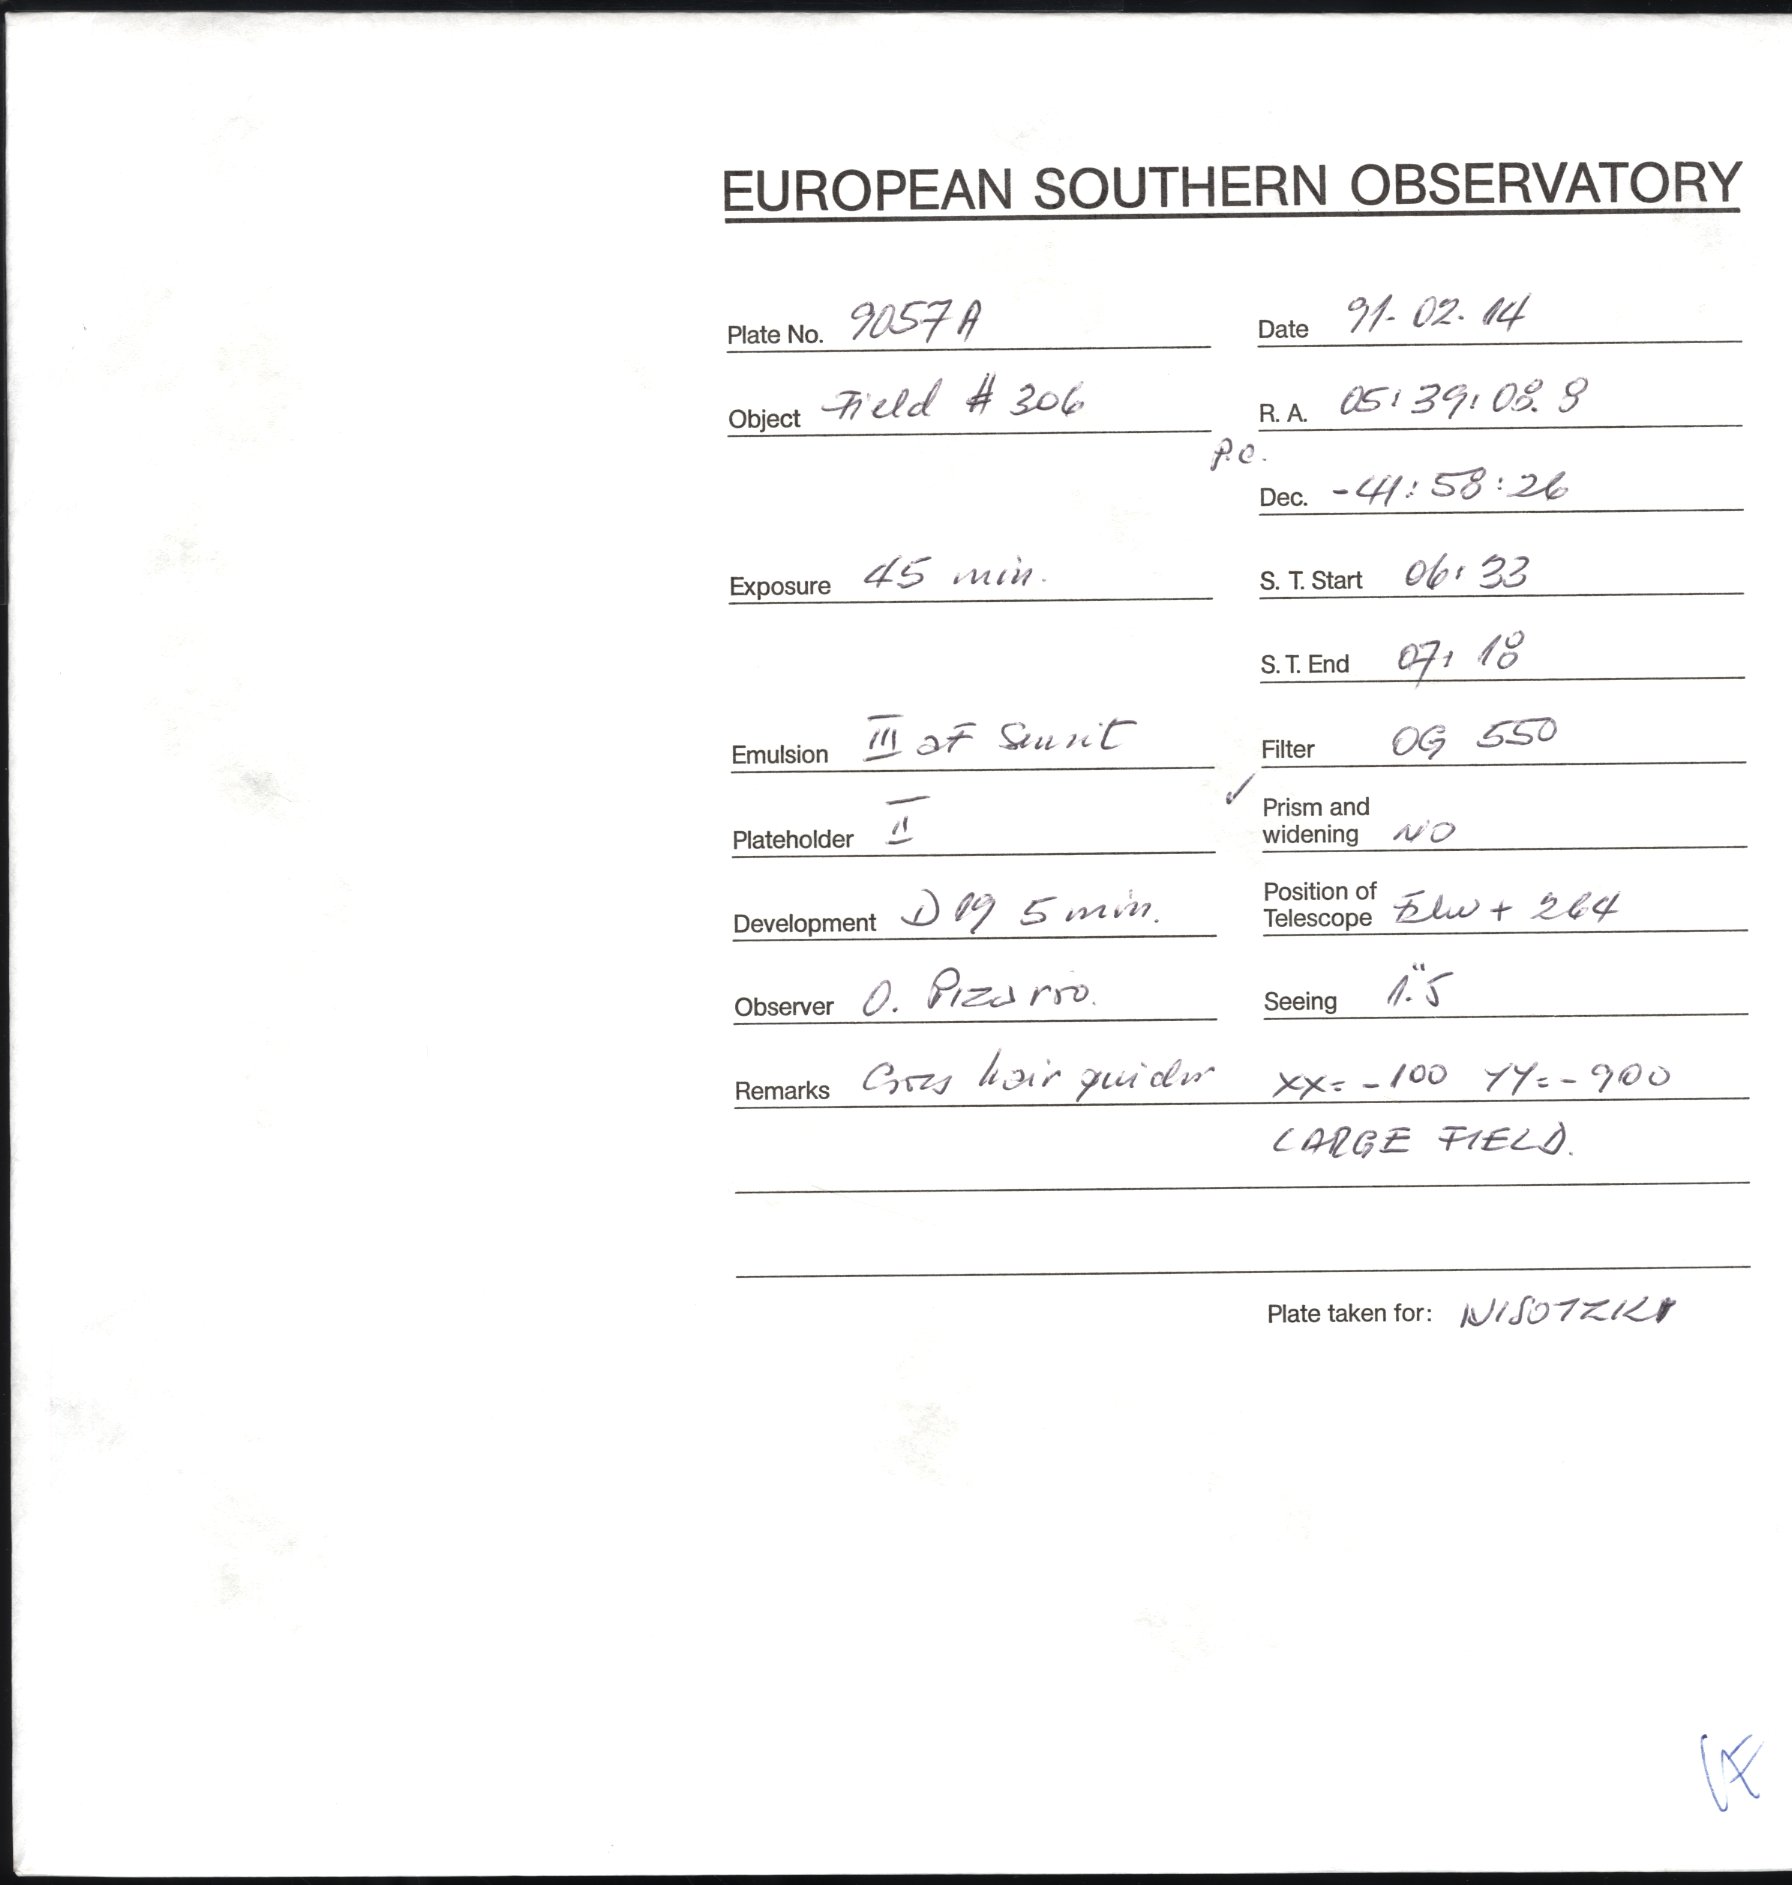 EUROPEAN SOUTHERN OBSERVATORY
Plate No. 9057A Date 91-02-14
Object Field # 306 R. A. 05:39:08.8
p.c.
Dec. -41:58:26
Exposure 45 min. S. T. Start 06:33
S. T. End 07:18
Emulsion III aF Sensit Filter OG 550
Plateholder II ✓ Prism and
widening NO
Development D 19 5 min. Position of
Telescope + 264
Observer O. Pizarro. Seeing 1."5
Remarks Cross hair guider XX=-100 YY=-900
LARGE FIELD.
Plate taken for: WISOTZKI